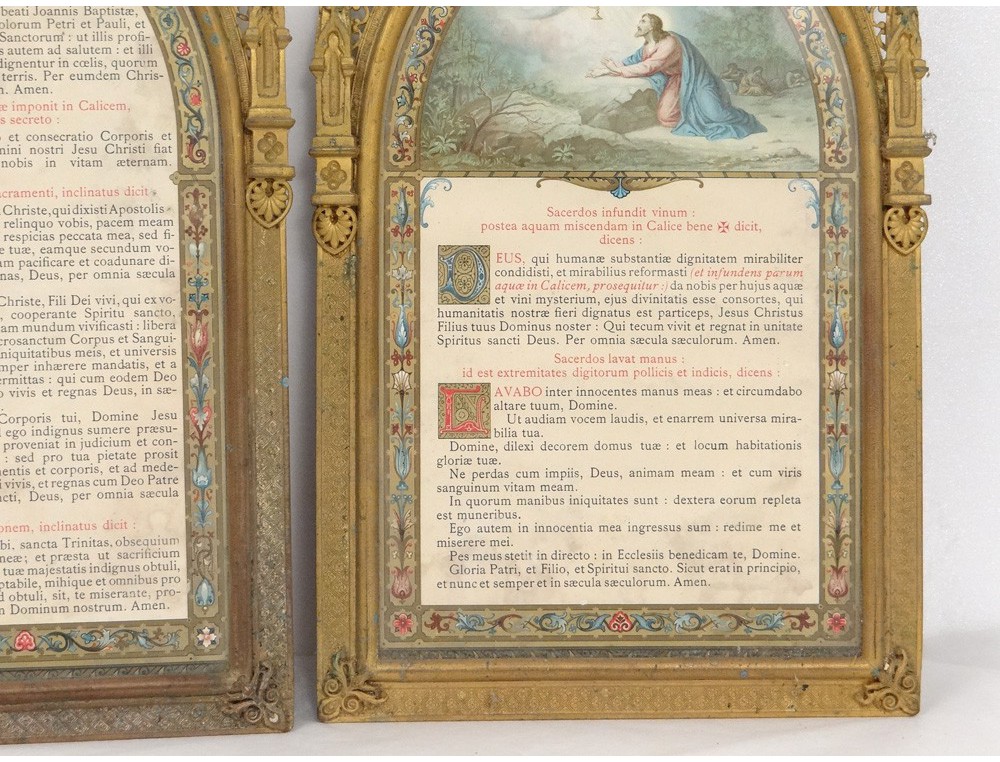 beati Joannis Baptistæ,
olorum Petri et Pauli, et
Sanctorum : ut illis profi-
s autem ad salutem : et illi
dignentur in cœlis, quorum
terris. Per eumdem Chris-
n. Amen.
æ imponit in Calicem,
s secreto :
o et consecratio Corporis et
mini nostri Jesu Christi fiat
nobis in vitam æternam.
acramenti, inclinatus dicit
Christe, qui dixisti Apostolis
relinquo vobis, pacem meam
respicias peccata mea, sed fi-
e tuæ, eamque secundum vo-
am pacificare et coadunare di-
nas, Deus, per omnia sæcula
Christe, Fili Dei vivi, qui ex vo-
, cooperante Spiritu sancto,
am mundum vivificasti : libera
crosanctum Corpus et Sangui-
niquitatibus meis, et universis
mper inhærere mandatis, et a
ermittas : qui cum eodem Deo
o vivis et regnas Deus, in sæ-
Corporis tui, Domine Jesu
d ego indignus sumere præsu-
proveniat in judicium et con-
: sed pro tua pietate prosit
mentis et corporis, et ad mede-
i vivis, et regnas cum Deo Patre
ncti, Deus, per omnia sæcula
onem, inclinatus dicit :
bi. sancta Trinitas, obsequium
neæ; et præsta ut sacrificium
tuæ majestatis indignus obtuli,
ptabile, mihique et omnibus pro
d obtuli, sit, te miserante, pro-
n Dominum nostrum. Amen.
Sacerdos infundit vinum :
postea aquam miscendam in Calice bene ✠ dicit,
dicens :
DEUS, qui humanæ substantiæ dignitatem mirabiliter
condidisti, et mirabilius reformasti (et infundens parum
aquæ in Calicem, prosequitur :) da nobis per hujus aquæ
et vini mysterium, ejus divinitatis esse consortes, qui
humanitatis nostræ fieri dignatus est particeps, Jesus Christus
Filius tuus Dominus noster : Qui tecum vivit et regnat in unitate
Spiritus sancti Deus. Per omnia sæcula sæculorum. Amen.
Sacerdos lavat manus :
id est extremitates digitorum pollicis et indicis, dicens :
LAVABO inter innocentes manus meas : et circumdabo
altare tuum, Domine.
Ut audiam vocem laudis, et enarrem universa mira-
bilia tua.
Domine, dilexi decorem domus tuæ : et locum habitationis
gloriæ tuæ.
Ne perdas cum impiis, Deus, animam meam : et cum viris
sanguinum vitam meam.
In quorum manibus iniquitates sunt : dextera eorum repleta
est muneribus.
Ego autem in innocentia mea ingressus sum : redime me et
miserere mei.
Pes meus stetit in directo : in Ecclesiis benedicam te, Domine.
Gloria Patri, et Filio, et Spiritui sancto. Sicut erat in principio,
et nunc et semper et in sæcula sæculorum. Amen.